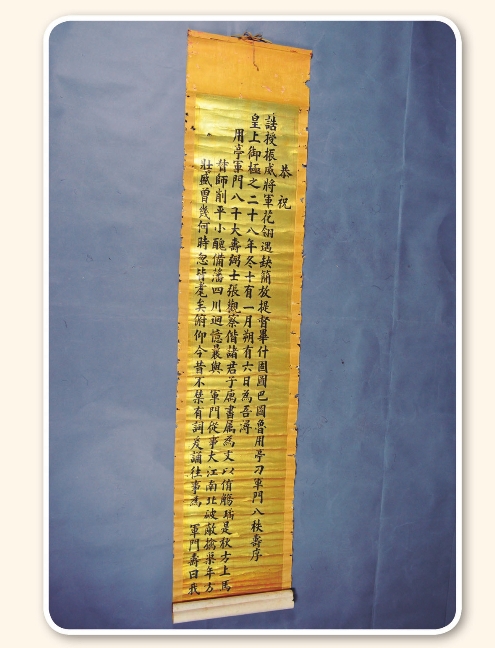 恭祝
誥授振威將軍花翎遇缺簡放提督畢什固圖巴圖魯用亭刁軍門八秩壽序
皇上御極之二十八年冬十有一月朔有六日為吾潯
用亭軍門八十大壽弼士張觀察偕諸君子 書屬為文以侑觴 是秋方上馬
督師削平小醜備藩四川迴憶曩與 軍門從事大江南北破敵擒渠年方
壯盛曾幾何時忽皆耄矣俯仰今昔不禁有詞爰誦往事為 軍門壽曰我